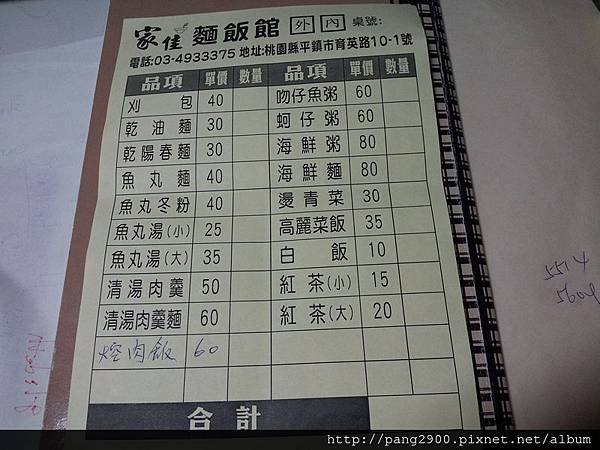 家佳麵飯館 外 內 桌號:
電話:03-4933375 地址:桃園縣平鎮市育英路10-1號
品項 單價 數量 品項 單價 數量
刈包 40 吻仔魚粥 60
乾油麵 30 蚵仔粥 60
乾陽春麵 30 海鮮粥 80
魚丸麵 40 海鮮麵 80
魚丸冬粉 40 燙青菜 30
魚丸湯(小) 25 高麗菜飯 35
魚丸湯(大) 35 白飯 10
清湯肉羹 50 紅茶(小) 15
清湯肉羹麵 60 紅茶(大) 20
焢肉飯 60
合計
5514
http://pang2900.pixnet.net/album